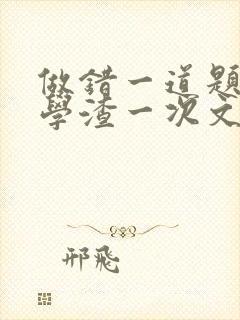 做错一道题
學渣一次文
邢飛